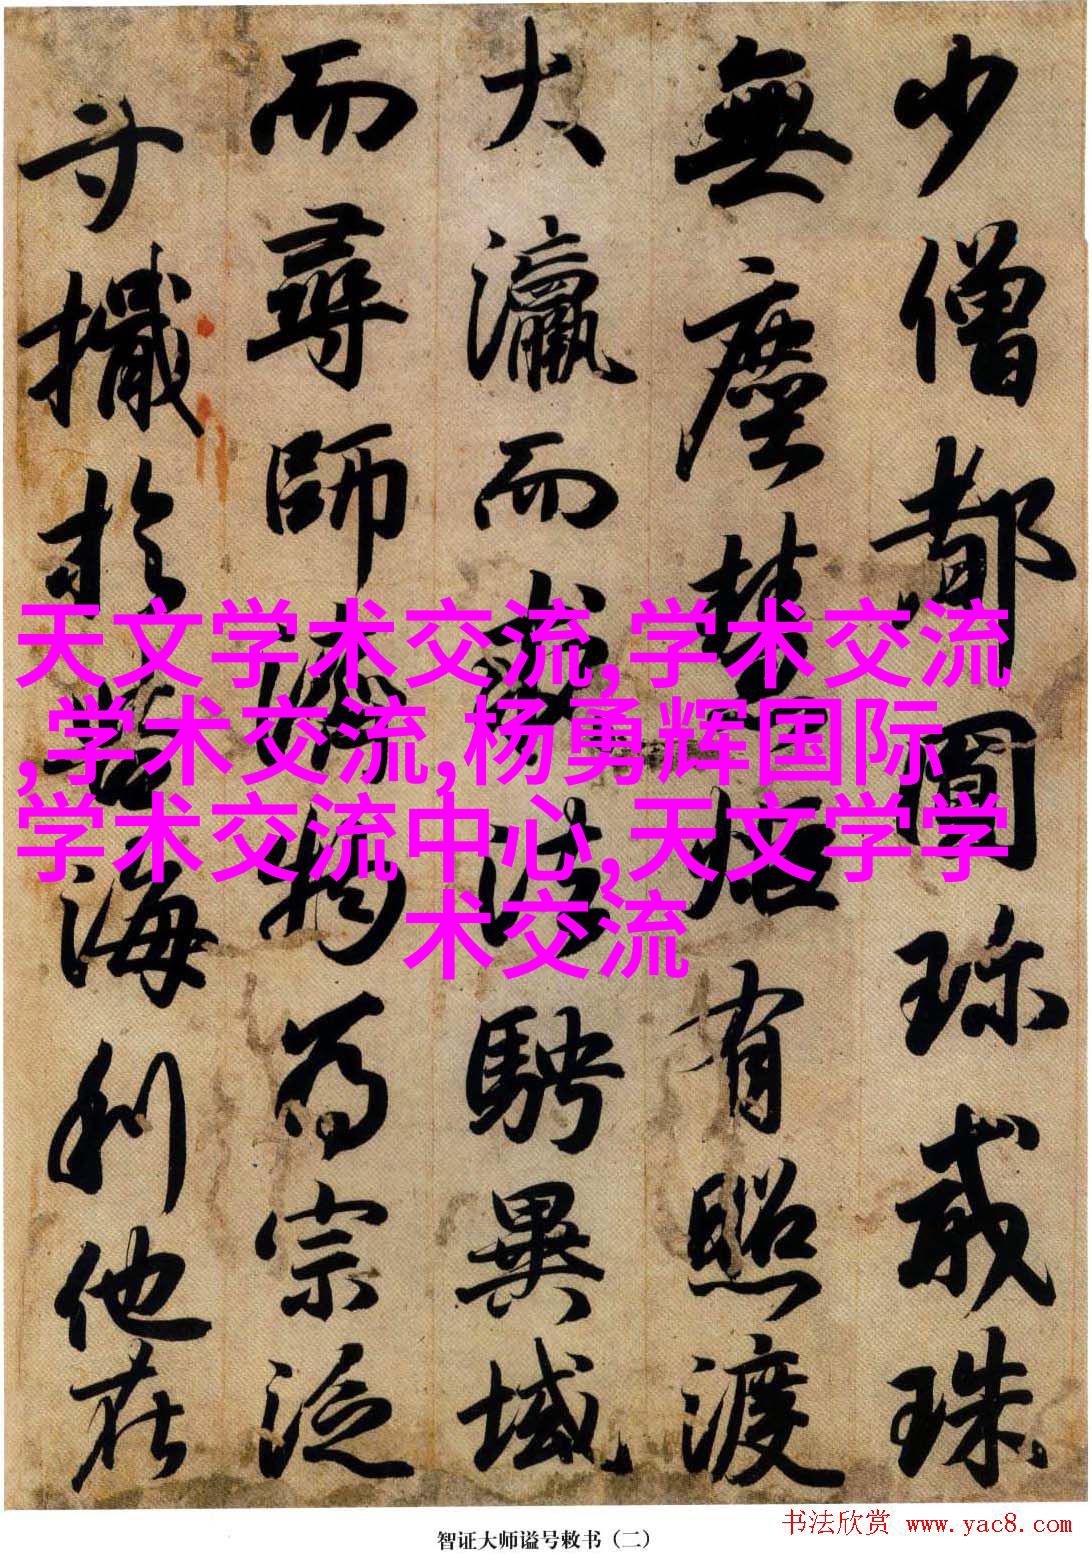 少僧都圓珎戒珠
無塵慧炬有照渡
大瀛而求法騁異域
而尋師濟物爲宗泛
寸擑於苦海利他在
天文学术交流,学术交流
,学术交流,杨勇辉国际
学术交流中心,天文学学
术交流
书法欣赏 www.yac8.com
智证大师谥号敕书（二）